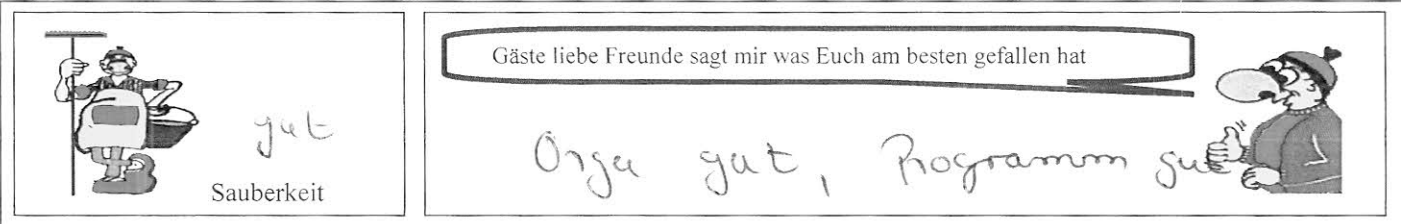 gut
Sauberkeit
Gäste liebe Freunde sagt mir was Euch am besten gefallen hat
Orga gut, Programm gut